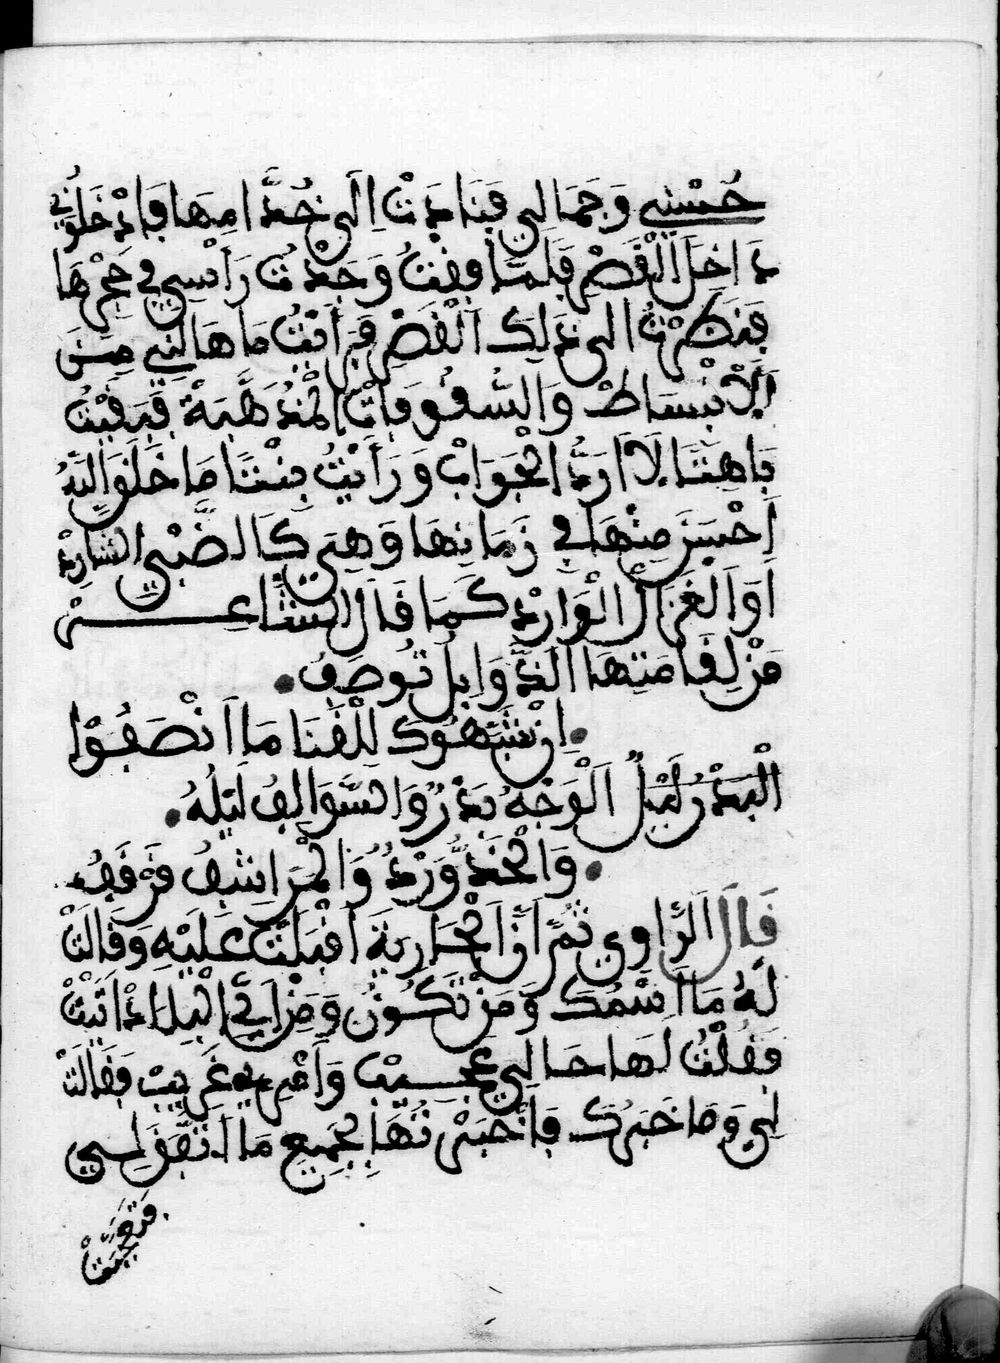 حُسْنِي وَجَمَالِي فَنَادَتْ اِلَى خُدَّامِهَا فَادْخَلُونِي
دَاخِلَ الْقَصْرِ فَلَمَّا وَفَفْتُ وَجَدْتُ رَأْسِي فِي حَجْرِهَا
فَنَظَرْتُ الى ذَلِكَ الْقَصْرِ فَرَأَيْتُ مَا هَالَنِي مِنَ
اَلاَنْبِسَاطْ وَالشُّفُوفَاتْ الْمُذَهَّبَةْ فَبَقِيْتُ
بَاهِتَا لَا اَرُدُّ الْجَوَابْ وَرَأَيْتُ بِنْتَا مَا خَلَقَ اللَّهُ
اَحْسَنَ مِنْهَا فِي زَمَانِهَا وَهِيَ كَالضَّبْيِ الشَّارِدْ
اَوَالْغَزَالْ الْوَارِدْ كَمَا قَالَ الشَّاعِـــرْ
مَنْ لِقَامَتِهَا الذَّوَابِلُ تُوصَفُ.
. اِنْ شَبَّهُوكَ لِلْقَنَا مَا اَنْصَفُوْا
الْبَدْرُ لَيْلٌ اَلْوَجْهُ بَدْرٌ وَالسَّوَالِفُ لَيْلُهُ.
. وَالْخَدُّ وَرْدٌ وَالْمَرَاشِفُ قَرْقَفُ.
قَالَ الرَّاوِي ثُمَّ اَنَّ الْجَارِيَةَ اَقْبَلَتْ عَلَيْهِ وَقَالَتْ
لَهُ مَا اَسْمُكَ وَمَنْ تَكُونُ وَمِنْ اَيِّ الْبِلَادْ اَتَيْتْ
فَقُلْتُ لَهَا حَالِي عَجِـيبْ وَأَمْرِي غَرِيبْ فَقَالَتْ
لِي وَمَا خَبَرُكَ فَأَخْبَرْتُهَا بِجَمِيعِ مَا اتَّفَقَ لِـي
فَتَعَجَّبَتْ